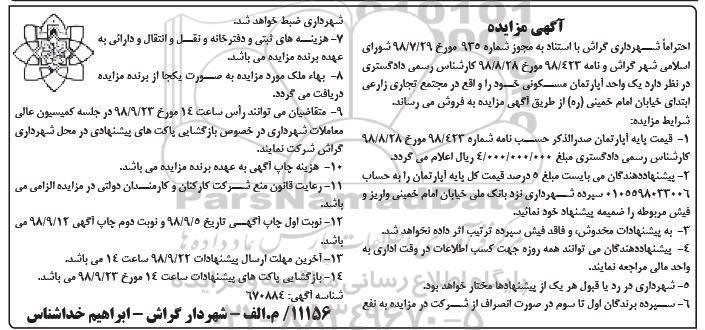 آگهی مزایده
احتراماً شهرداری گراش با استناد به مجوز شماره ۹۳۵ مورخ ۹۸/۷/۲۹ شورای
اسلامی شهر گراش و نامه ۹۸/۴۲۳ مورخ ۹۸/۸/۲۸ کارشناس رسمی دادگستری
در نظر دارد یک واحد آپارتمان مسکونی خود را واقع در مجتمع تجاری زارعی
ابتدای خیابان امام خمینی (ره) از طریق آگهی مزایده به فروش می رساند.
شرایط مزایده:
۱- قیمت پایه آپارتمان صدرالذکر حسب نامه شماره ۹۸/۴۲۳ مورخ ۹۸/۸/۲۸
کارشناس رسمی دادگستری مبلغ ۴/۰۰۰/۰۰۰/۰۰۰ ریال اعلام می گردد.
۲- پیشنهاددهندگان می بایست مبلغ ۵ درصد قیمت کل پایه آپارتمان را به حساب
۰۱۰۵۵۹۸۰۳۳۰۰۶ سپرده شهرداری نزد بانک ملی خیابان امام خمینی واریز و
فیش مربوطه را ضمیمه پیشنهاد خود نمائید.
۳- به پیشنهادات مخدوش، و فاقد فیش سپرده ترتیب اثر داده نخواهد شد.
۴- پیشنهاددهندگان می توانند همه روزه جهت کسب اطلاعات در وقت اداری به
واحد مالی مراجعه نمایند.
۵- شهرداری در رد یا قبول هر یک از پیشنهادها مختار خواهد بود.
۶- سپرده برندگان اول تا سوم در صورت انصراف از شرکت در مزایده به نفع
شهرداری ضبط خواهد شد.
۷- هزینه های ثبتی و دفترخانه و نقل و انتقال و دارائی به
عهده برنده مزایده می باشد.
۸- بهاء ملک مورد مزایده به صورت یکجا از برنده مزایده
دریافت می گردد.
۹- متقاضیان می توانند رأس ساعت ۱۴ مورخ ۹۸/۹/۲۳ در جلسه کمیسیون عالی
معاملات شهرداری در خصوص بازگشایی پاکت های پیشنهادی در محل شهرداری
گراش شرکت نمایند.
۱۰- هزینه چاپ آگهی به عهده برنده مزایده می باشد.
۱۱- رعایت قانون منع شرکت کارکنان و کارمندان دولتی در مزایده الزامی می
باشد.
۱۲- نوبت اول چاپ آگهی تاریخ ۹۸/۹/۵ و نوبت دوم چاپ آگهی ۹۸/۹/۱۲ می
باشد.
۱۳- آخرین مهلت ارسال پیشنهادات ۹۸/۹/۲۲ ساعت ۱۴ می باشد.
۱۴- بازگشایی پاکت های پیشنهادات ساعت ۱۴ مورخ ۹۸/۹/۲۳ می باشد.
شناسه آگهی: ۶۷۰۸۸۴
۱۱۱۵۶/ م.الف - شهردار گراش - ابراهیم خداشناس